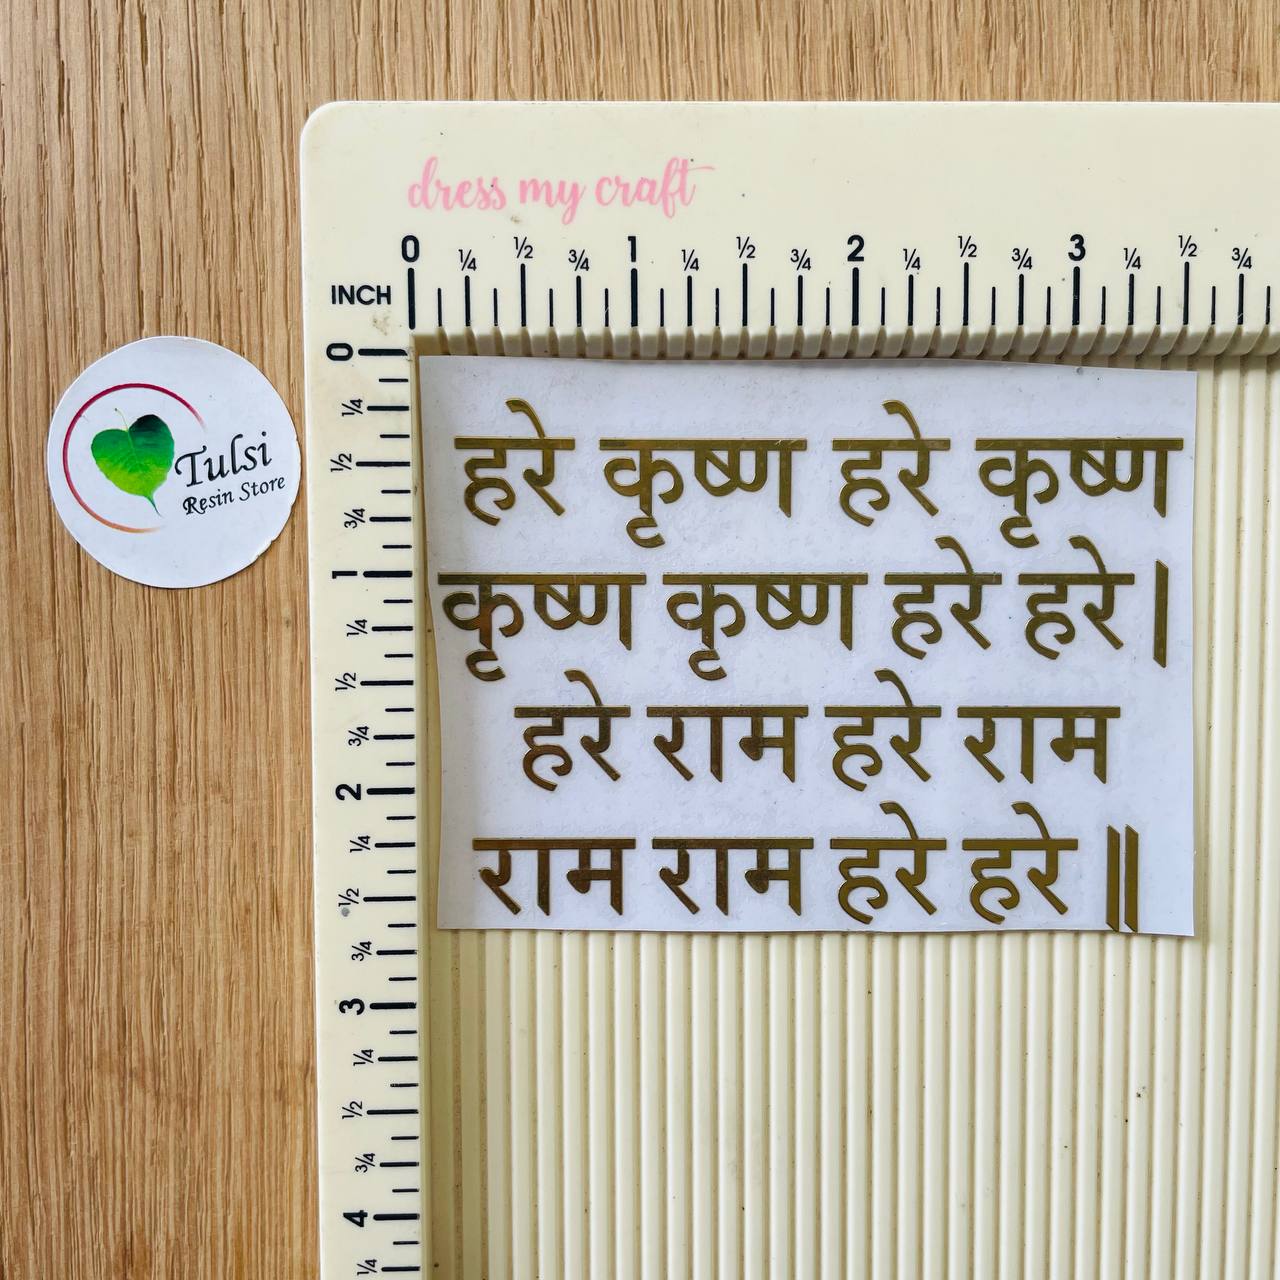 dress my craft
0 1/4 1/2 3/4 1 1/4 1/2 3/4 2 1/4 1/2 3/4 3 1/4 1/2 3/4
INCH
0
1/4
1/2
3/4
1
1/4
1/2
3/4
2
1/4
1/2
3/4
3
1/4
1/2
3/4
4
1/4
Tulsi
Resin Store
हरे कृष्ण हरे कृष्ण
कृष्ण कृष्ण हरे हरे।
हरे राम हरे राम
राम राम हरे हरे॥